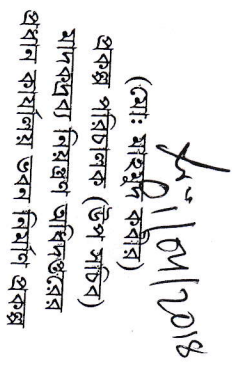 ১৭/০৮/২০১৪
(মোঃ মাহমুদ কবীর)
প্রকল্প পরিচালক (উপ সচিব)
মাদকদ্রব্য নিয়ন্ত্রণ অধিদপ্তরের
প্রধান কার্যালয় ভবন নির্মাণ প্রকল্প